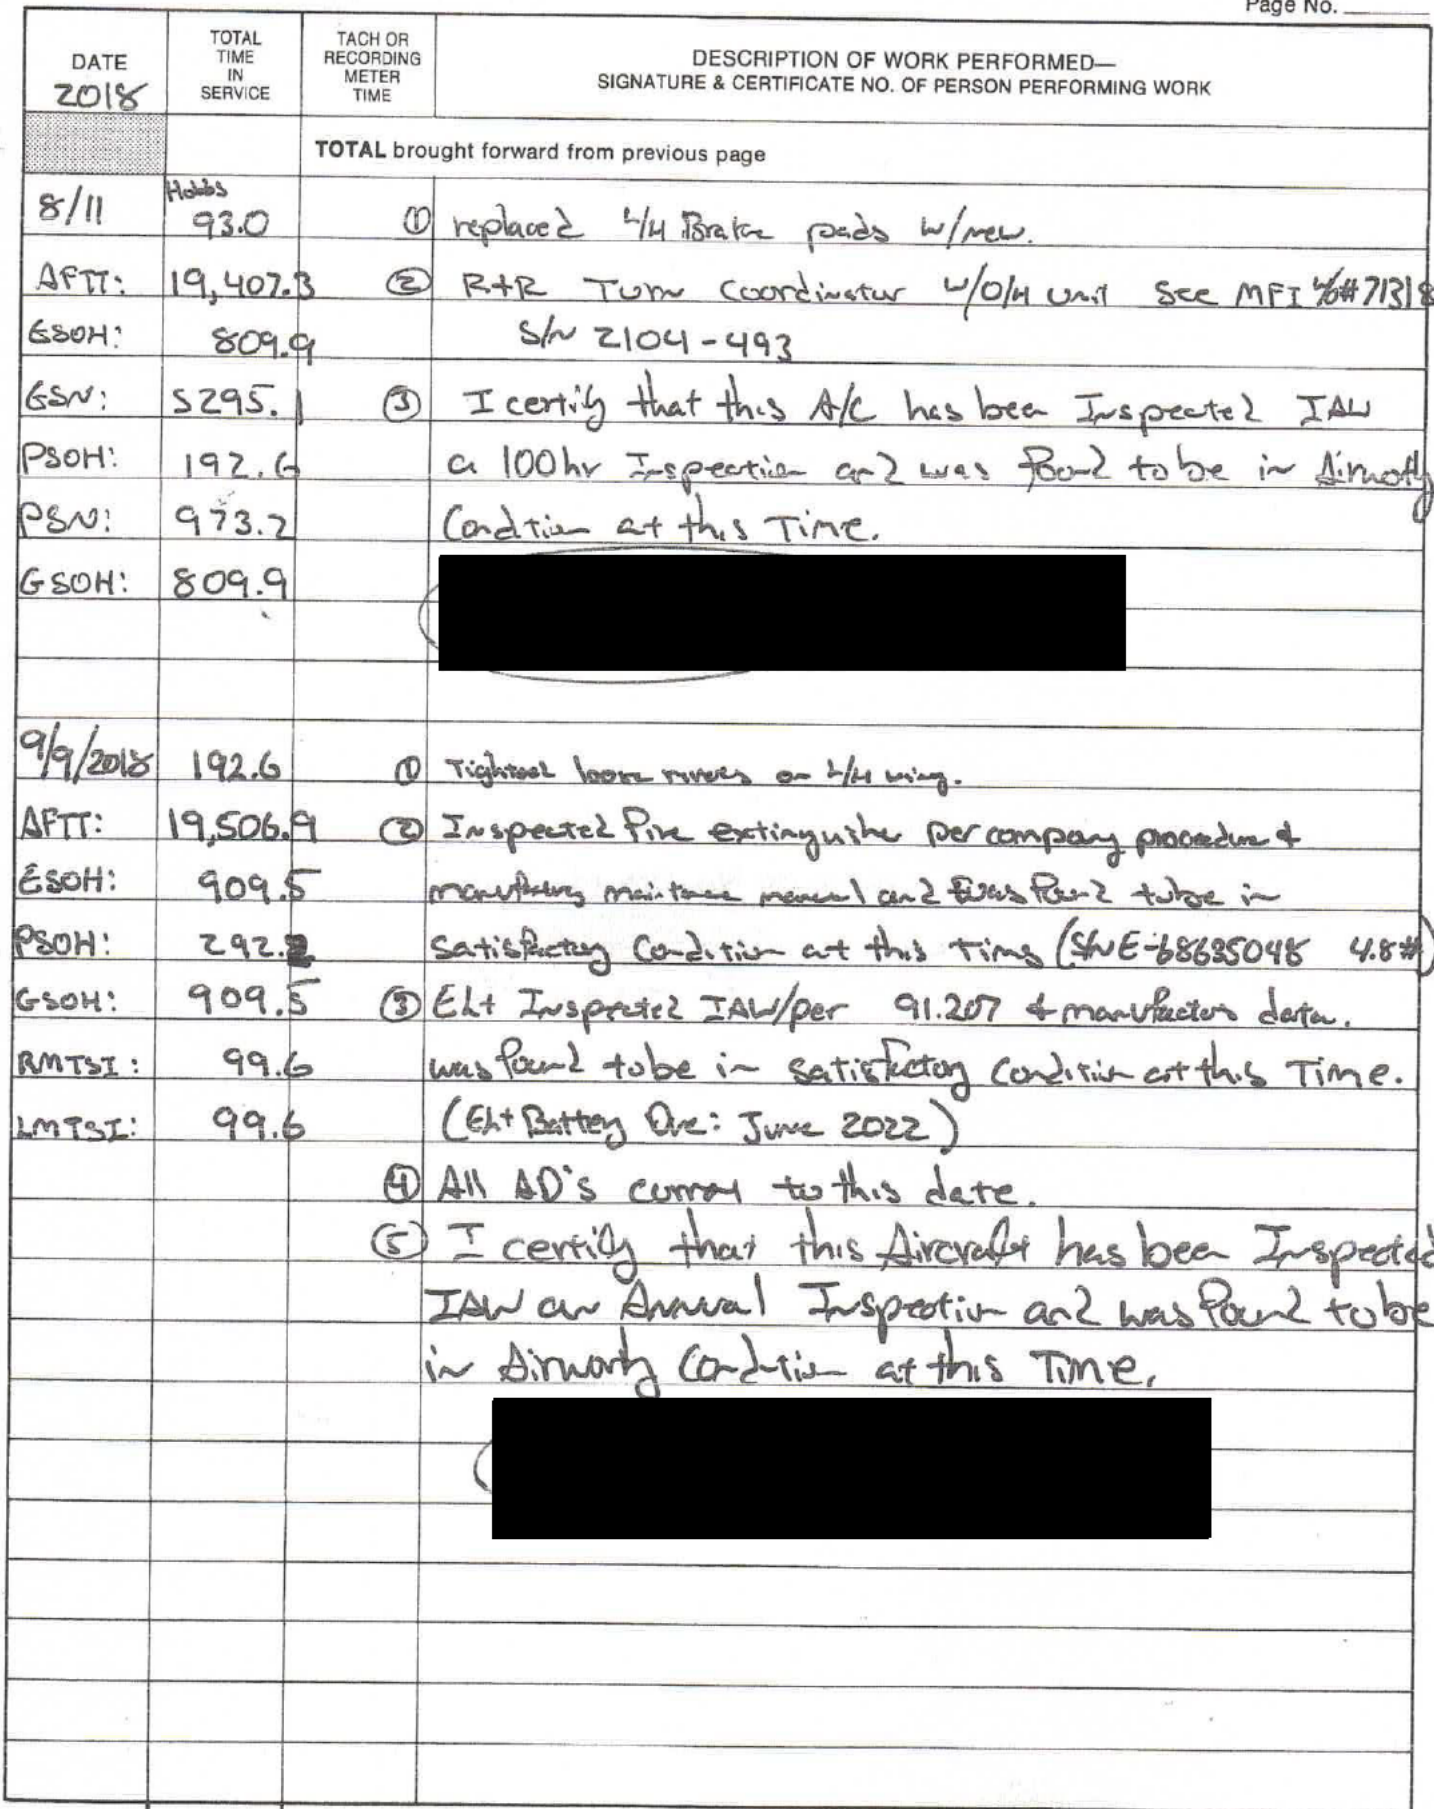 Page No.
DATE
2018
TOTAL
TIME
IN
SERVICE
TACH OR
RECORDING
METER
TIME
DESCRIPTION OF WORK PERFORMED—
SIGNATURE & CERTIFICATE NO. OF PERSON PERFORMING WORK
TOTAL brought forward from previous page
8/11 Hobbs 93.0 ① replaced L/H Brake pads w/new.
AFTT: 19,407.3 ② R+R Turn Coordinator w/O/H Unit See MFI W/O#71318
ESOH: 809.9 S/N 2104-493
GSN: 5295.1 ③ I certify that this A/C has been Inspected IAW
PSOH: 192.6 a 100hr Inspection and was found to be in Airworthy
PSN: 973.2 Condition at this Time.
GSOH: 809.9
9/9/2018 192.6 ① Tightned loose rivets on L/H wing.
AFTT: 19,506.9 ② Inspected fire extinguisher per company procedure &
ESOH: 909.5 manufacturers maintenance manual and was found to be in
PSOH: 292.2 satisfactory Condition at this time (S/N E-68635048 4.8#)
GSOH: 909.5 ③ Elt Inspected IAW/per 91.207 & manufacturers data.
RMTSI: 99.6 was found to be in satisfactory Condition at this Time.
LMTSI: 99.6 (Elt Battery Due: June 2022)
④ All AD's current to this date.
⑤ I certify that this Aircraft has been Inspected
IAW an Annual Inspection and was found to be
in Airworthy Condition at this Time.